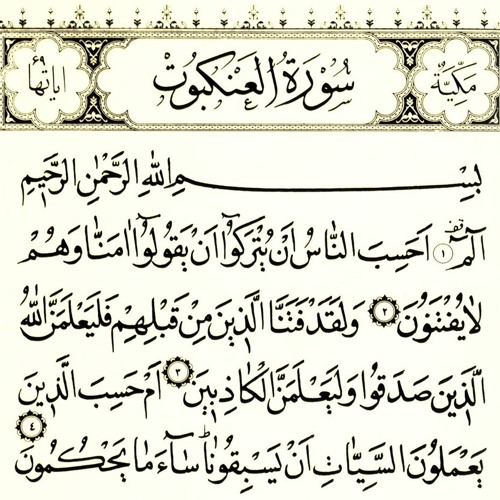 مَكِّيَّةٌ سُورَةُ الْعَنْكَبُوتِ اٰيَاتُهَا ٦٩
بِسْمِ اللّٰهِ الرَّحْمٰنِ الرَّحٖيمِ
الٓمٓ ﴿١﴾ اَحَسِبَ النَّاسُ اَنْ يُتْرَكُٓوا اَنْ يَقُولُٓوا اٰمَنَّا وَهُمْ
لَا يُفْتَنُونَ ﴿٢﴾ وَلَقَدْ فَتَنَّا الَّذٖينَ مِنْ قَبْلِهِمْ فَلَيَعْلَمَنَّ اللّٰهُ
الَّذٖينَ صَدَقُوا وَلَيَعْلَمَنَّ الْكَاذِبٖينَ ﴿٣﴾ اَمْ حَسِبَ الَّذٖينَ
يَعْمَلُونَ السَّيِّـَٔاتِ اَنْ يَسْبِقُونَاؕ سَٓاءَ مَا يَحْكُمُونَ ﴿٤﴾